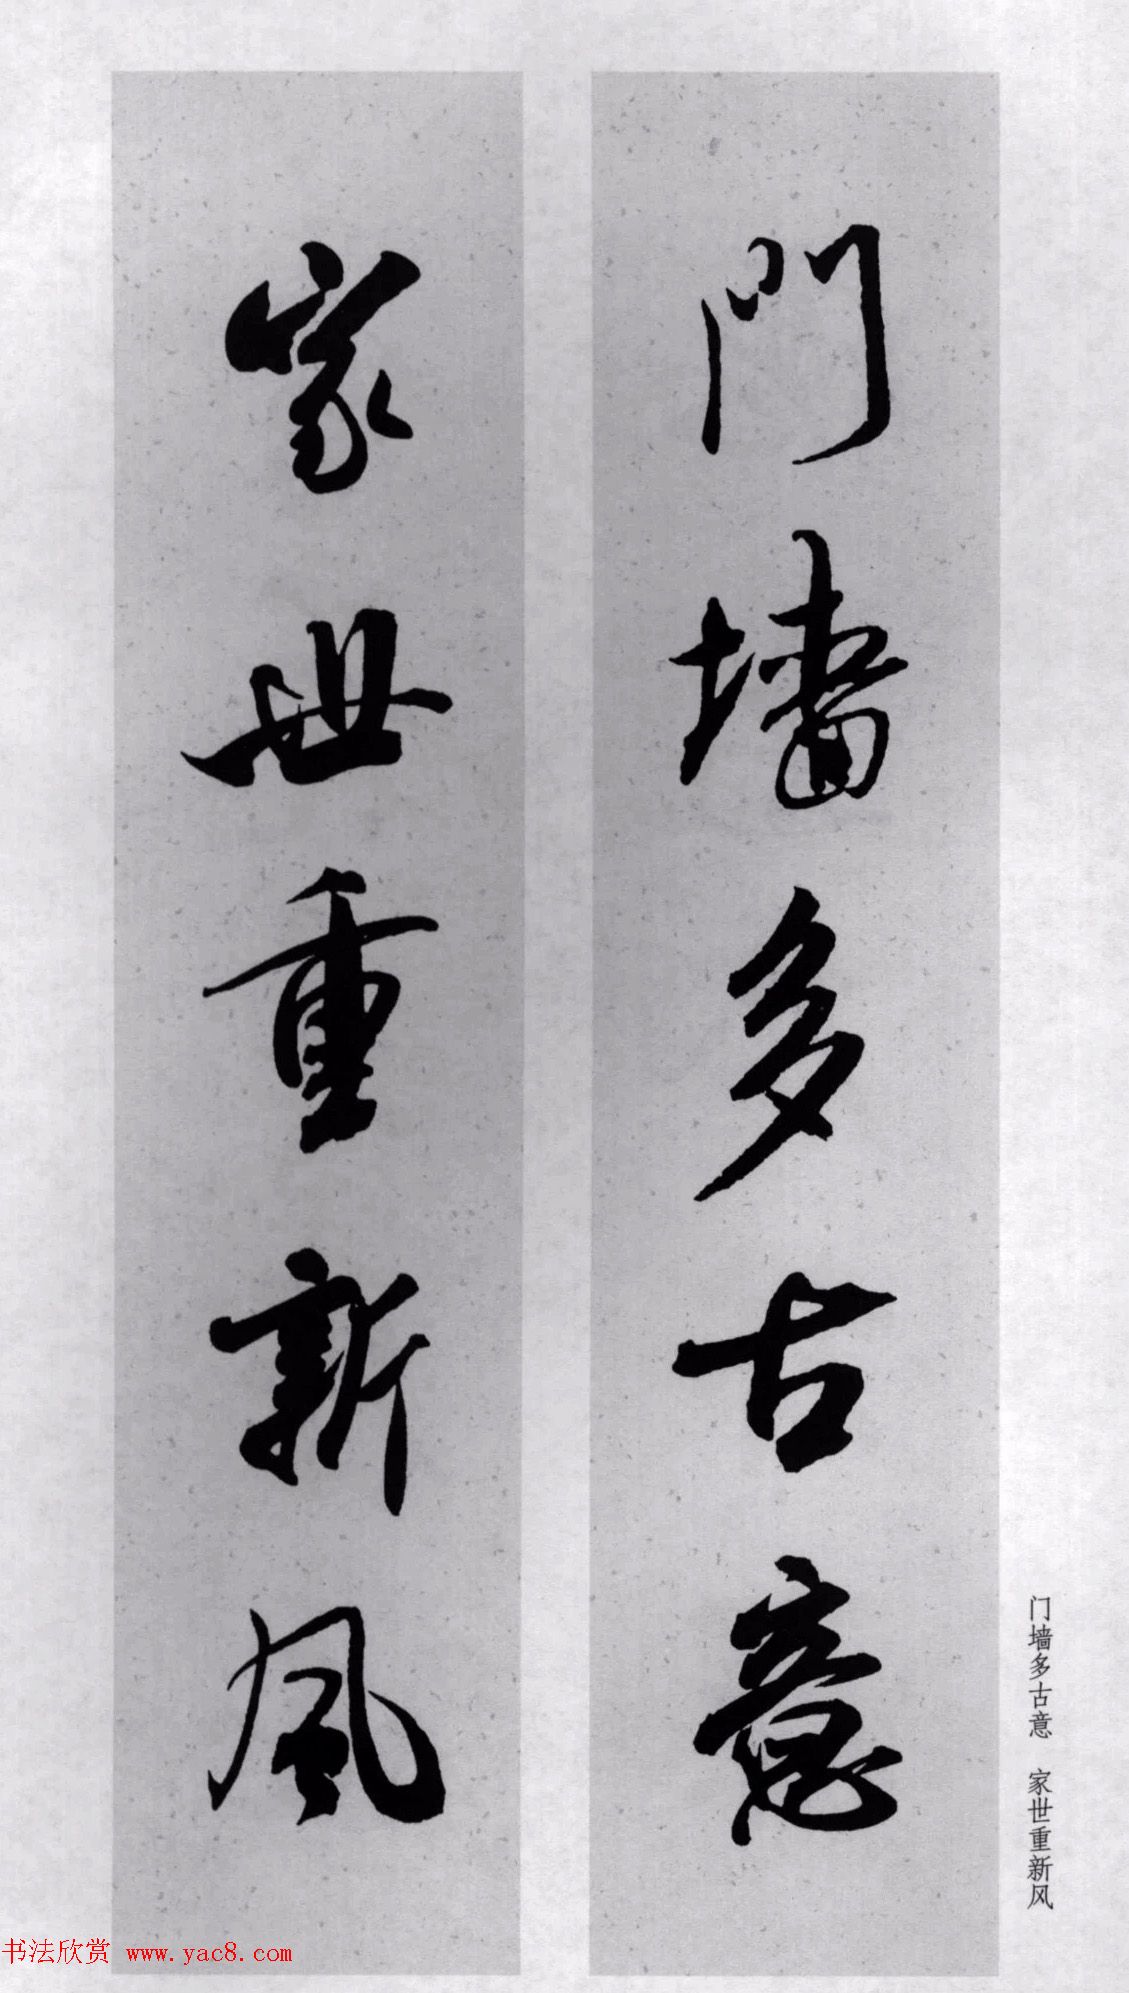 門墙多古意
家世重新風
门墙多古意 家世重新风
书法欣赏 www.yac8.com